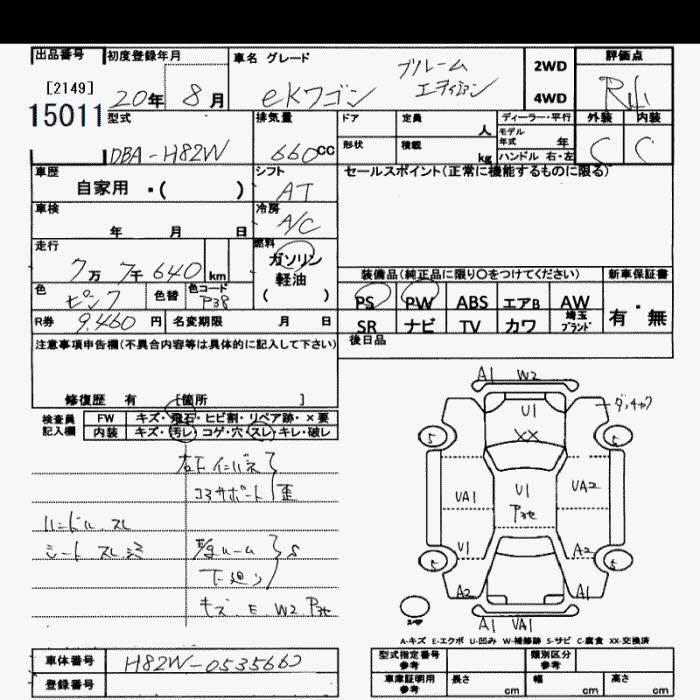 出品番号 初度登録年月 車名 グレード 評価点
[2149]
15011
20年 8月
ekワゴン ブルーム エディション
2WD
4WD
外装 内装
C C
型式 排気量 ドア 定員 人 ディーラー・平行
DBA-H82W 660cc
形状 積載 kg モデル年式 年
ハンドル 右・左
車歴 自家用 ・( )
シフト AT
セールスポイント(正常に機能するものに限る)
車検 年 月 日
冷房 A/C
走行 7万 7千 640 km
燃料 ガソリン 軽油 ( )
装備品(純正品に限り○をつけてください) 新車保証書
色 ピンク 色替 色コード P38
PS PW ABS エアB AW
SR ナビ TV カワ 埼玉ブランド
有・無
R券 9,460 円 名変期限 月 日
後日品
注意事項申告欄(不具合内容等は具体的に記入して下さい)
修復歴 有 [箇所 ]
検査員記入欄
FW キズ・飛石・ヒビ割・リペア跡・×要
内装 キズ・汚レ・コゲ・穴・スレ・キレ・破レ
右下インパネ
コアサポート 歪
ハンドル スレ
シート スレ
ルーム S
下廻り
キズ E W2
A1 W2
U1
XX
5 5
UA1 U1 UA2
U1 A2
5 5
A2 A1
A1 UA1
A-キズ E-エクボ U-凹み W-補修跡 S-サビ C-腐食 XX-交換済
車体番号 H82W-0535660
登録番号
型式指定番号 参考 類別区分 参考
車庫証明用 参考 長さ cm 幅 cm 高さ cm